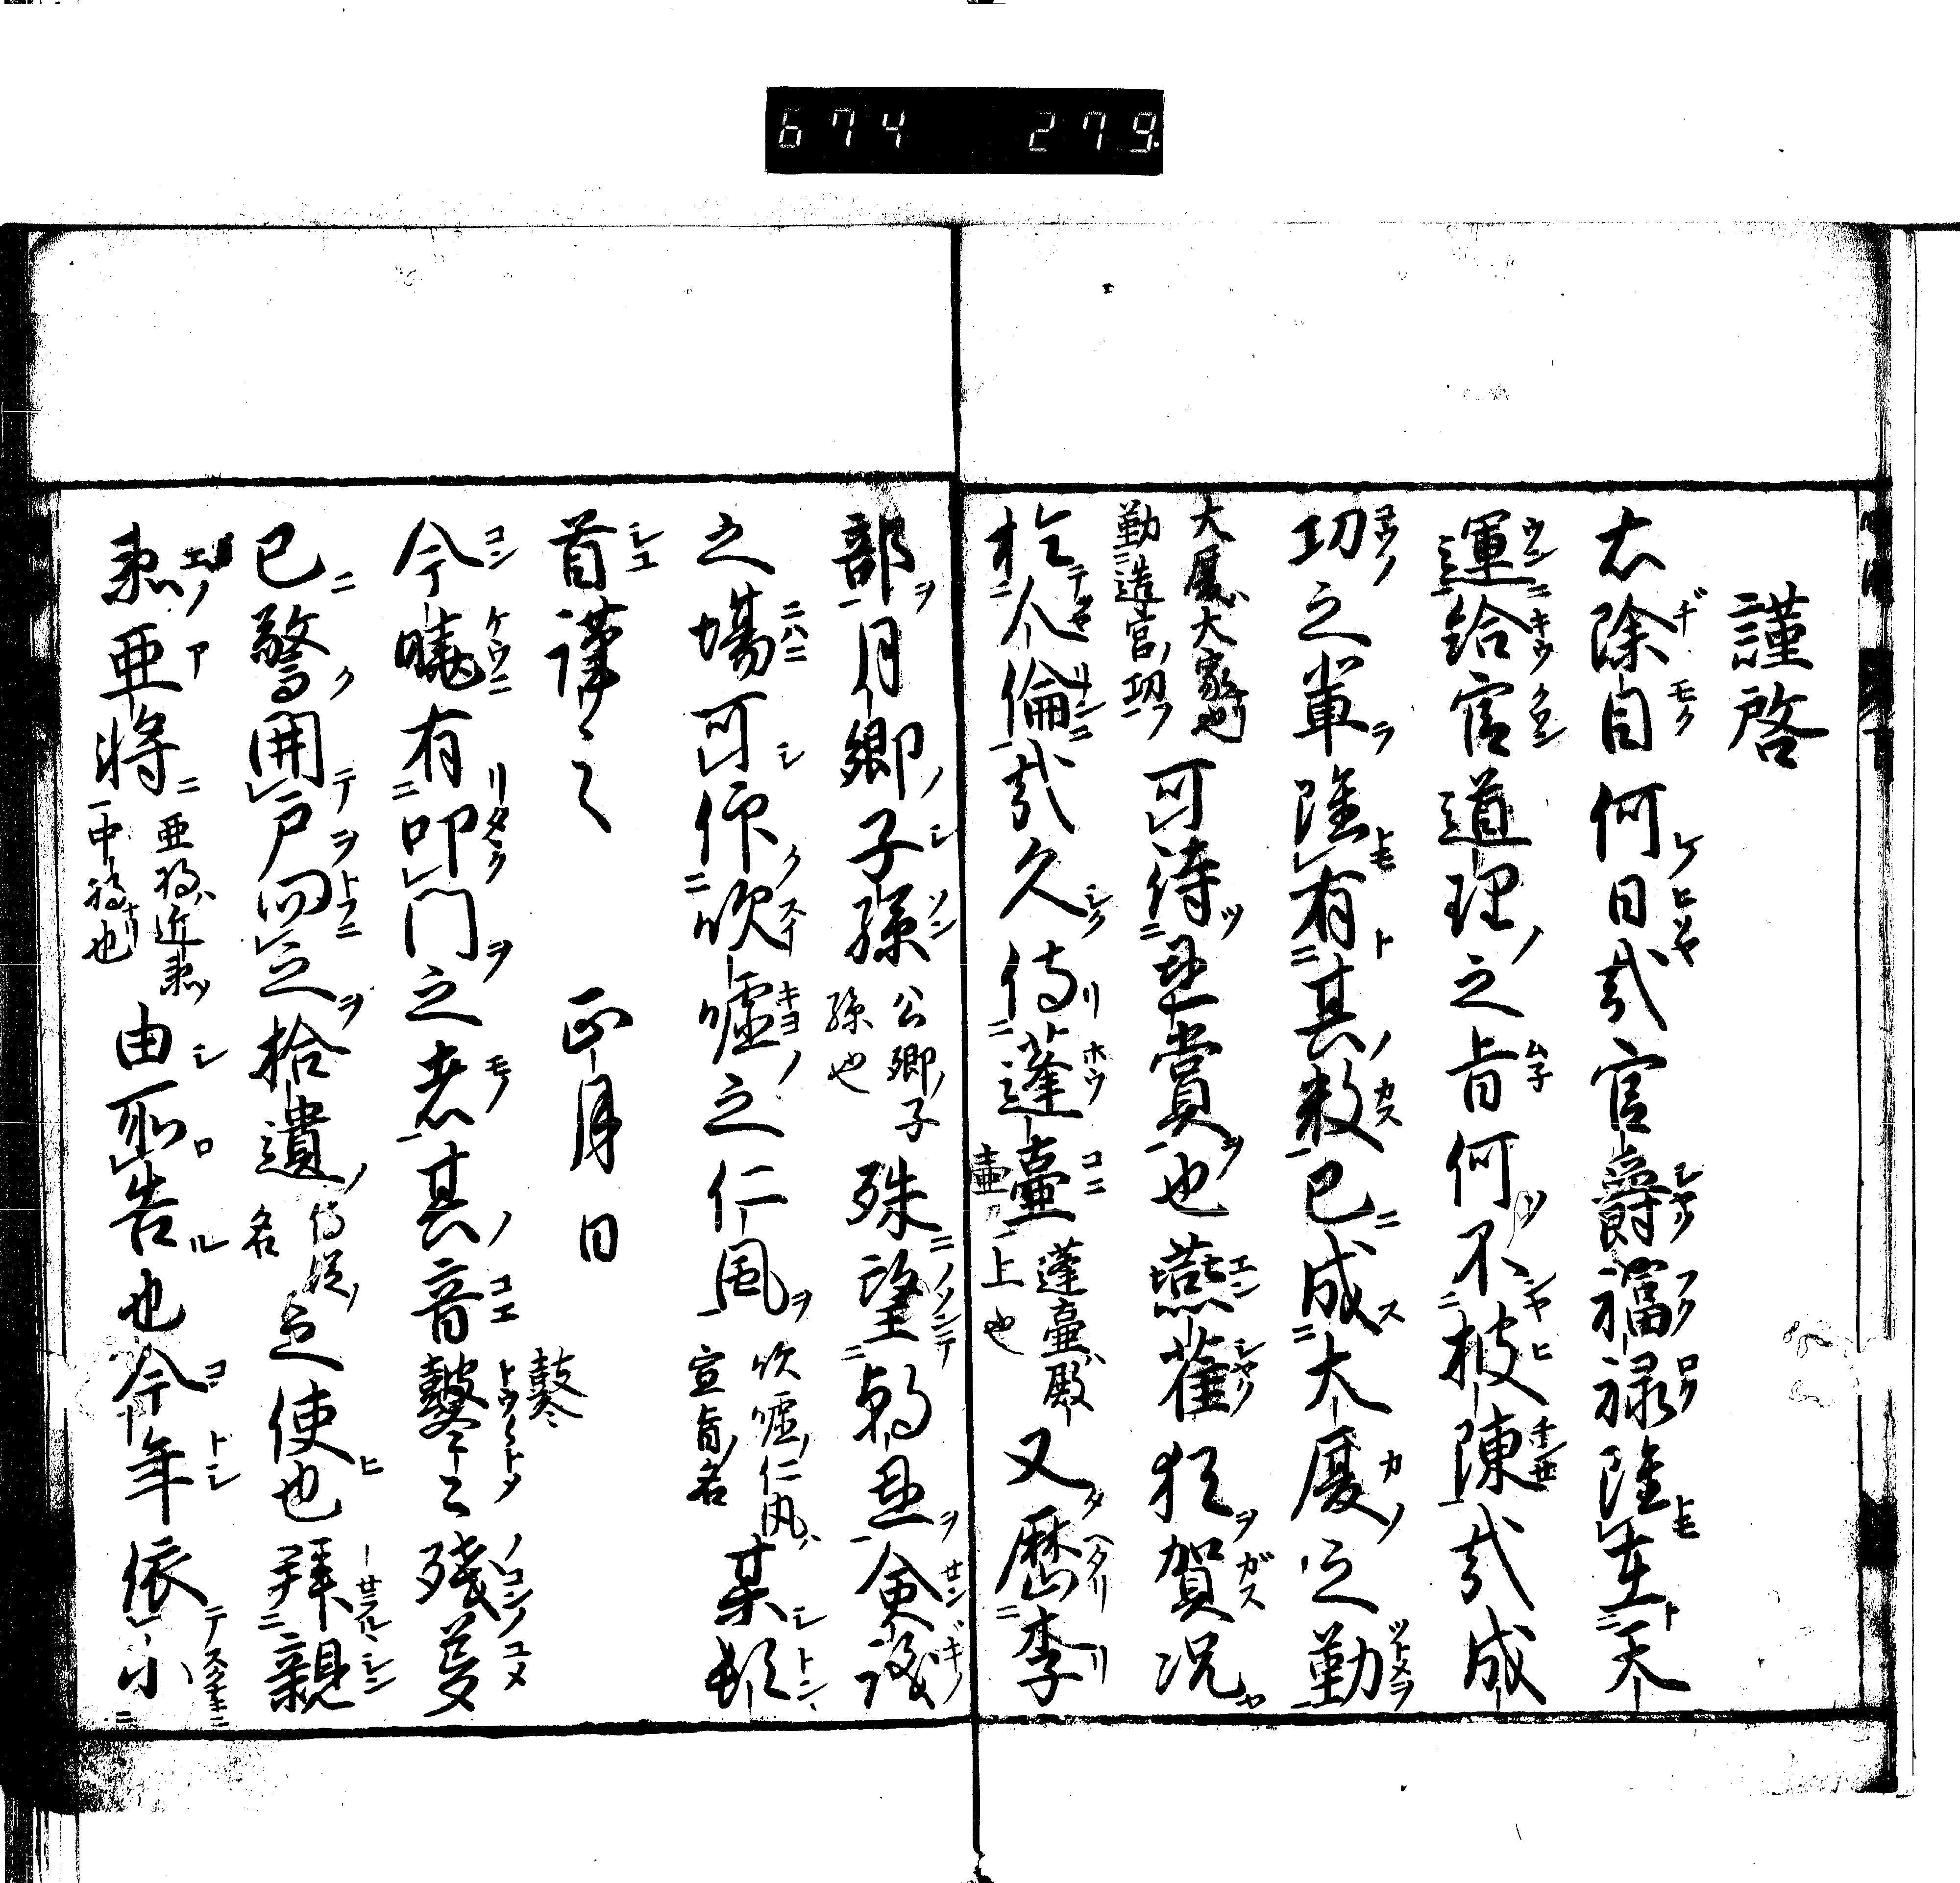 674 279
謹啓
右除目何日哉官爵福禄雖在天
運給官道理之旨何不披陳哉成
功之輩雖有其数已成大厦之勤
大厦大家也
勤造宮功
可待其賞也燕雀猶賀況
於人倫哉久侍蓬壷
壷
蓬壷殿
上也
又歴李
部月卿子孫
公卿子
孫也
殊望朝恩僉議
之場可仰吹嘘之仁風
吹嘘仁風
宣旨名
某頓
首謹言
正月日
今暁有叩門之者其音鼕々残夢
鼕
已驚開戸問之拾遺
侍従
名
之使也拝親
衛亜将
亜将近衛
中将也
由所告也今年依小